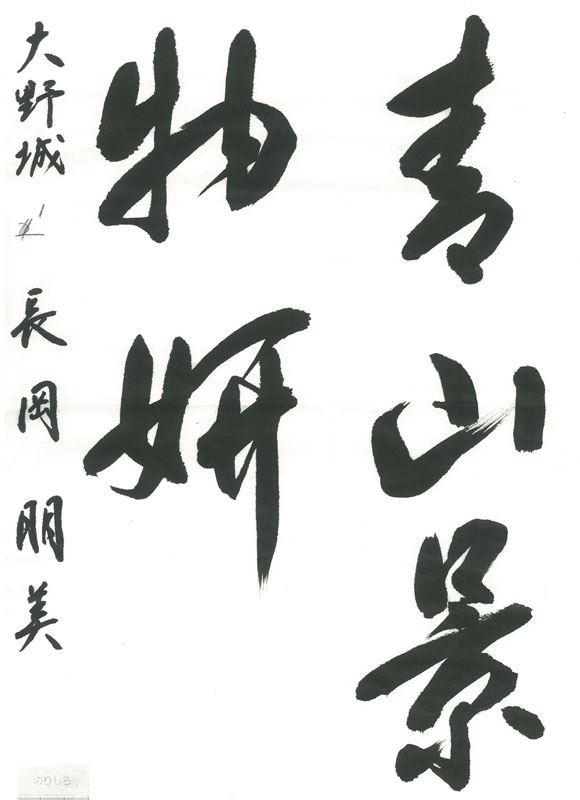 青山景
物妍
大野城 長岡朋美
のりしろ